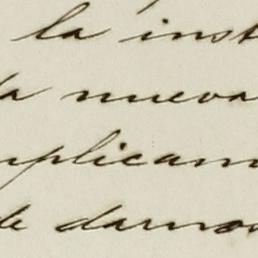 la inst
la nueva
mplicam
de darnos